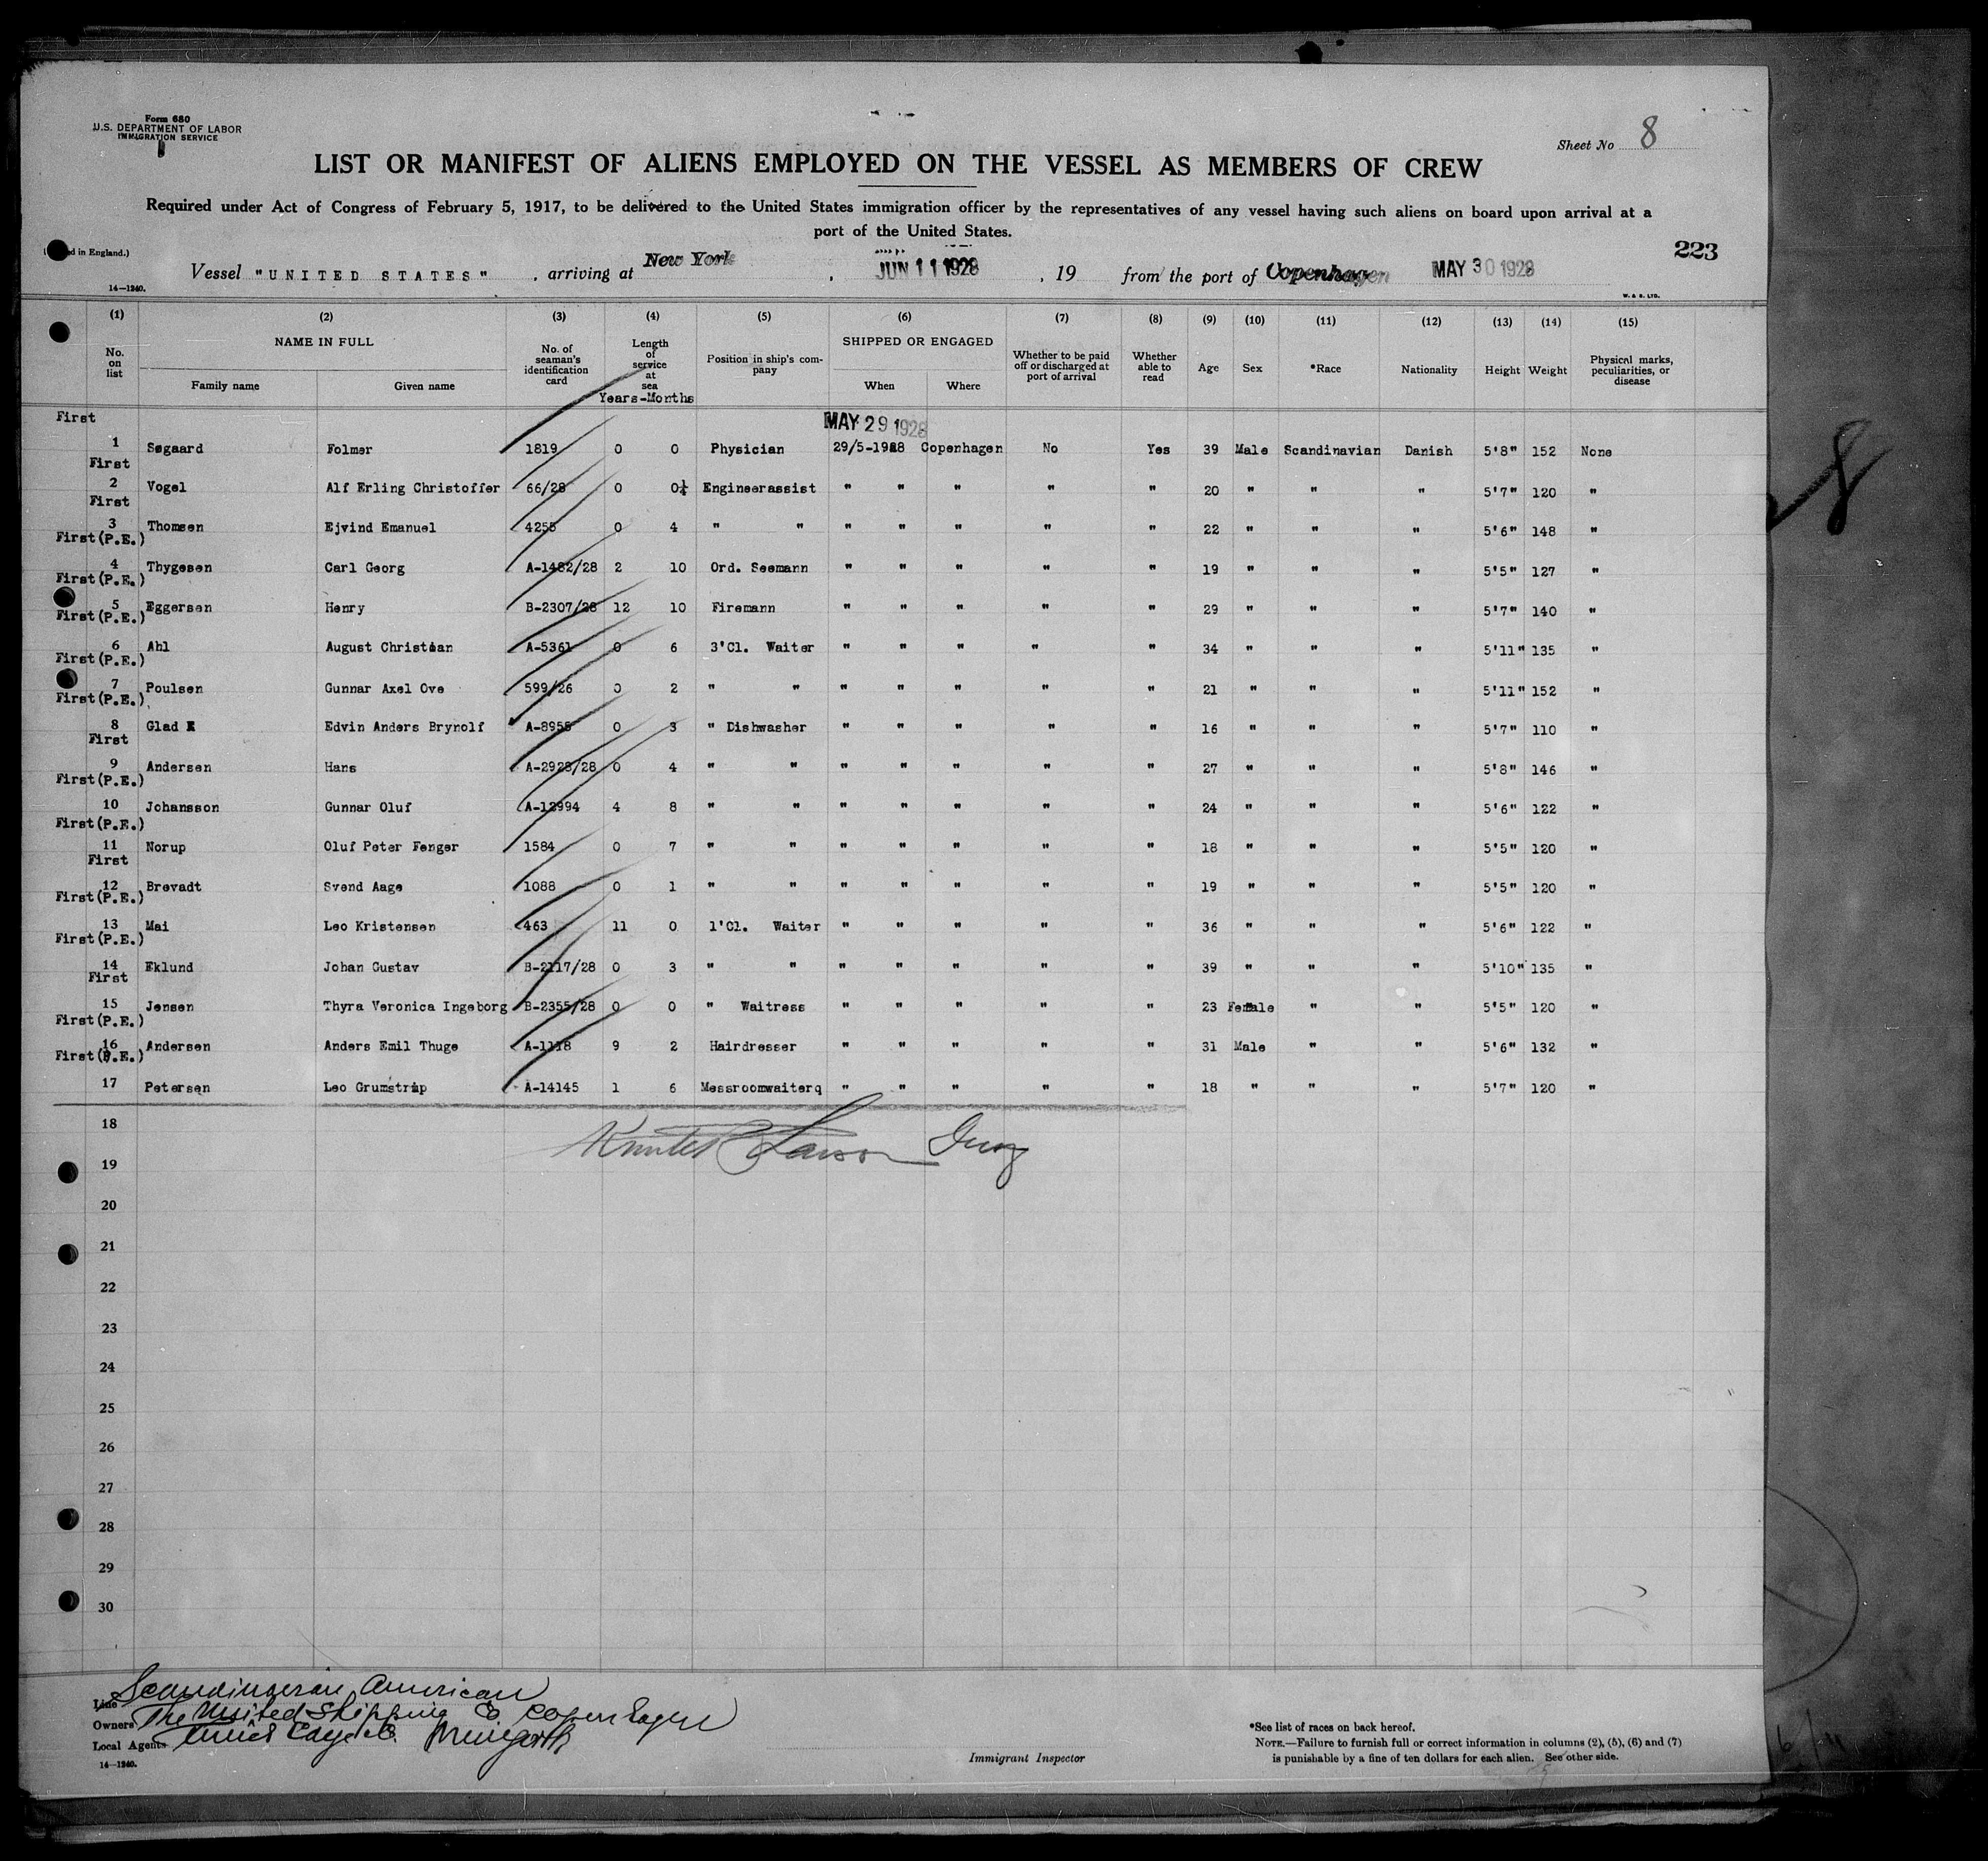 Form 680
U.S. DEPARTMENT OF LABOR
IMMIGRATION SERVICE
Sheet No 8
LIST OR MANIFEST OF ALIENS EMPLOYED ON THE VESSEL AS MEMBERS OF CREW
Required under Act of Congress of February 5, 1917, to be delivered to the United States immigration officer by the representatives of any vessel having such aliens on board upon arrival at a
port of the United States.
d in England.) 223
Vessel "UNITED STATES" , arriving at New York , JUN 11 1928 , 19 from the port of Copenhagen MAY 30 1928
14—1240. W. & S. LTD.
(1) (2) (3) (4) (5) (6) (7) (8) (9) (10) (11) (12) (13) (14) (15)
No. on list NAME IN FULL Family name Given name No. of seaman's identification card Length of service at sea Years-Months Position in ship's company SHIPPED OR ENGAGED When Where Whether to be paid off or discharged at port of arrival Whether able to read Age Sex *Race Nationality Height Weight Physical marks, peculiarities, or disease
First MAY 29 1928
1 Søgaard Folmer 1819 0 0 Physician 29/5-1928 Copenhagen No Yes 39 Male Scandinavian Danish 5'8" 152 None
First
2 Vogel Alf Erling Christoffer 66/28 0 0½ Engineerassist " " " " " 20 " " " 5'7" 120 "
First
3 Thomsen Ejvind Emanuel 4255 0 4 " " " " " " " 22 " " " 5'6" 148 "
First(P.E.)
4 Thygesen Carl Georg A-1482/28 2 10 Ord. Seemann " " " " " 19 " " " 5'5" 127 "
First(P.E.)
5 Eggersen Henry B-2307/28 12 10 Firemann " " " " " 29 " " " 5'7" 140 "
First(P.E.)
6 Ahl August Christian A-5361 0 6 3'Cl. Waiter " " " " " 34 " " " 5'11" 135 "
First(P.E.)
7 Poulsen Gunnar Axel Ove 599/26 0 2 " " " " " " " 21 " " " 5'11" 152 "
First(P.E.)
8 Glad Edvin Anders Brynolf A-8955 0 3 " Dishwasher " " " " " 16 " " " 5'7" 110 "
First
9 Andersen Hans A-2928/28 0 4 " " " " " " " 27 " " " 5'8" 146 "
First(P.E.)
10 Johansson Gunnar Oluf A-12994 4 8 " " " " " " " 24 " " " 5'6" 122 "
First(P.E.)
11 Norup Oluf Peter Fenger 1584 0 7 " " " " " " " 18 " " " 5'5" 120 "
First
12 Brevadt Svend Aage 1088 0 1 " " " " " " " 19 " " " 5'5" 120 "
First(P.E.)
13 Mai Leo Kristensen 463 11 0 1'Cl. Waiter " " " " " 36 " " " 5'6" 122 "
First(P.E.)
14 Eklund Johan Gustav B-2117/28 0 3 " " " " " " " 39 " " " 5'10" 135 "
First
15 Jensen Thyra Veronica Ingeborg B-2355/28 0 0 " Waitress " " " " " 23 Female " " 5'5" 120 "
First(P.E.)
16 Andersen Anders Emil Thuge A-1118 9 2 Hairdresser " " " " " 31 Male " " 5'6" 132 "
First(P.E.)
17 Petersen Leo Grumstrup A-14145 1 6 Messroomwaiterq " " " " " 18 " " " 5'7" 120 "
18
19
20
21
22
23
24
25
26
27
28
29
30
Line Scandinavian American
Owners The United Shipping Co Copenhagen
Local Agents
14—1240.
Immigrant Inspector
*See list of races on back hereof.
NOTE.—Failure to furnish full or correct information in columns (2), (5), (6) and (7)
is punishable by a fine of ten dollars for each alien. See other side.